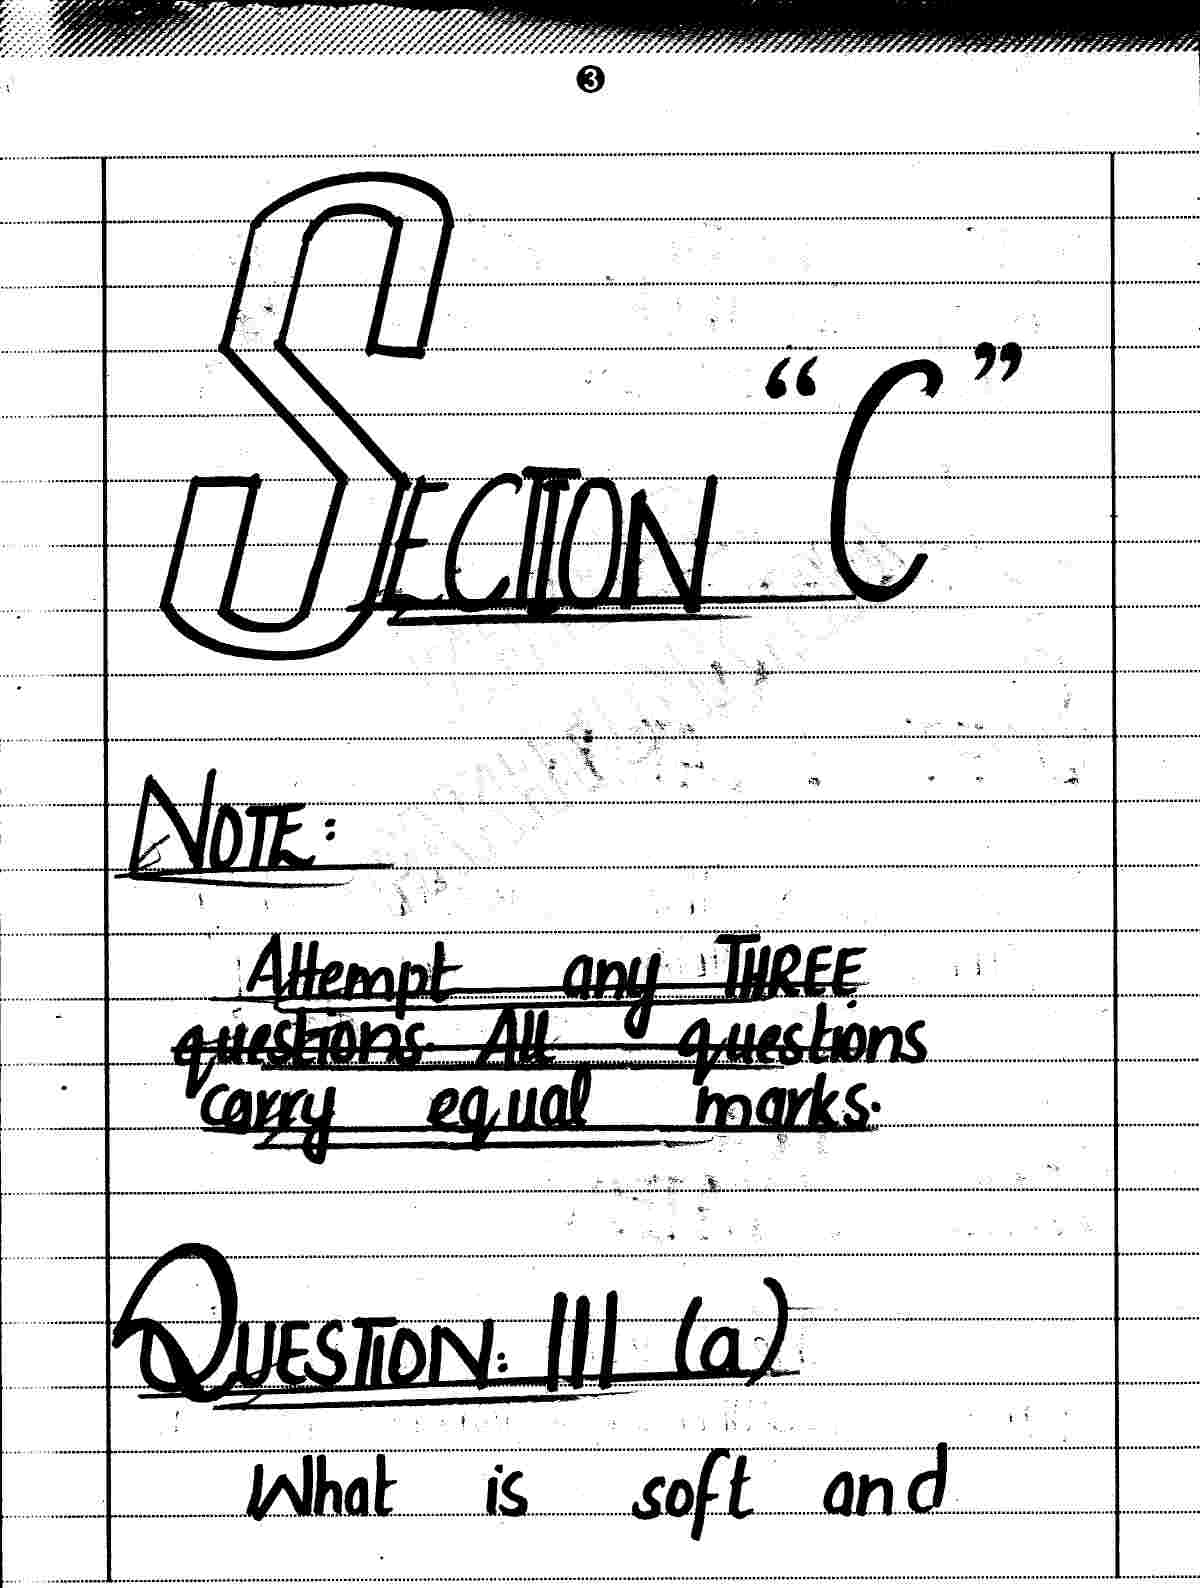 3
SECTION "C"
NOTE:
Attempt any THREE
questions. All questions
carry equal marks.
QUESTION: III (a)
What is soft and